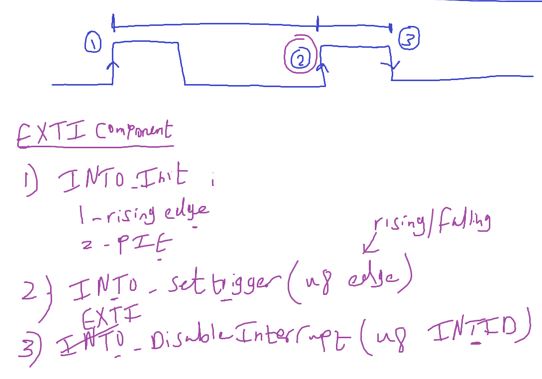 1 2 3
EXTI Component
1) INT0_Init ;
1-rising edge
2-PIE
rising/falling
2) INT0_settrigger(u8 edge)
EXTI
3) INT0_DisableInterrupt(u8 INTID)